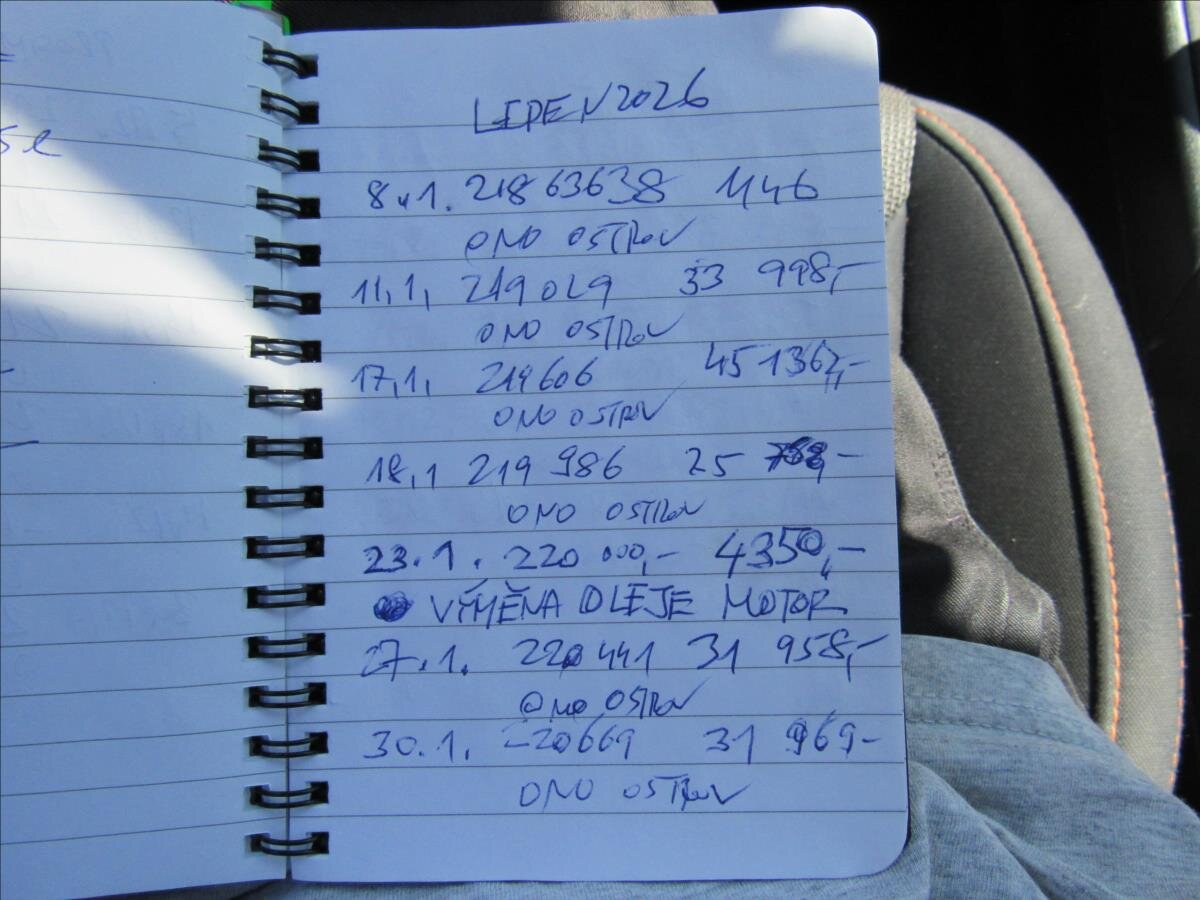 5l
LEDEN 2026
8.1. 218636 38 1146
ONO OSTROV
11,1, 219029 33 998,-
ONO OSTROV
17,1, 219606 45 1362,-
ONO OSTROV
18,1 219 986 25
ONO OSTROV
23.1. 220 000,- 4350,-
VÝMĚNA OLEJE MOTOR
27.1. 220441 31 958,-
ONO OSTROV
30.1. 220669 31 969-
ONO OSTROV